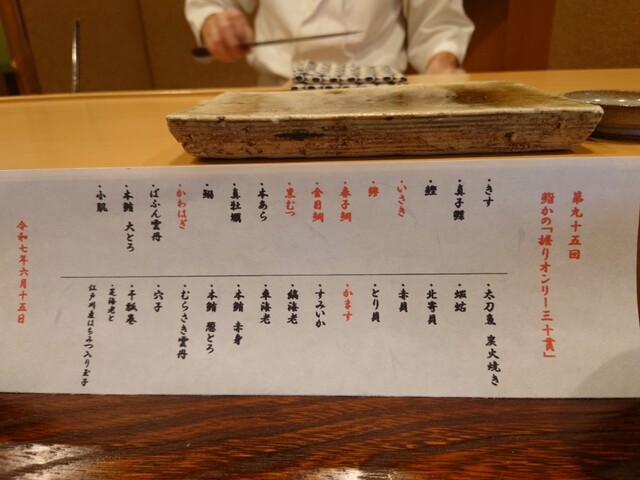 第九十五回
鮨かの「握りオンリー三十貫」
・きす
・真子鰈
・鰹
・いさき
・鯵
・春子鯛
・金目鯛
・黒むつ
・本あら
・真牡蠣
・蛸
・かわはぎ
・ばふん雲丹
・本鮪 大とろ
・小肌
・太刀魚 炭火焼き
・蝦蛄
・北寄貝
・赤貝
・とり貝
・かます
・すみいか
・縞海老
・車海老
・本鮪 赤身
・本鮪 葱とろ
・むらさき雲丹
・穴子
・干瓢巻
・芝海老と
江戸川産はちみつ入り玉子
令和七年六月十五日